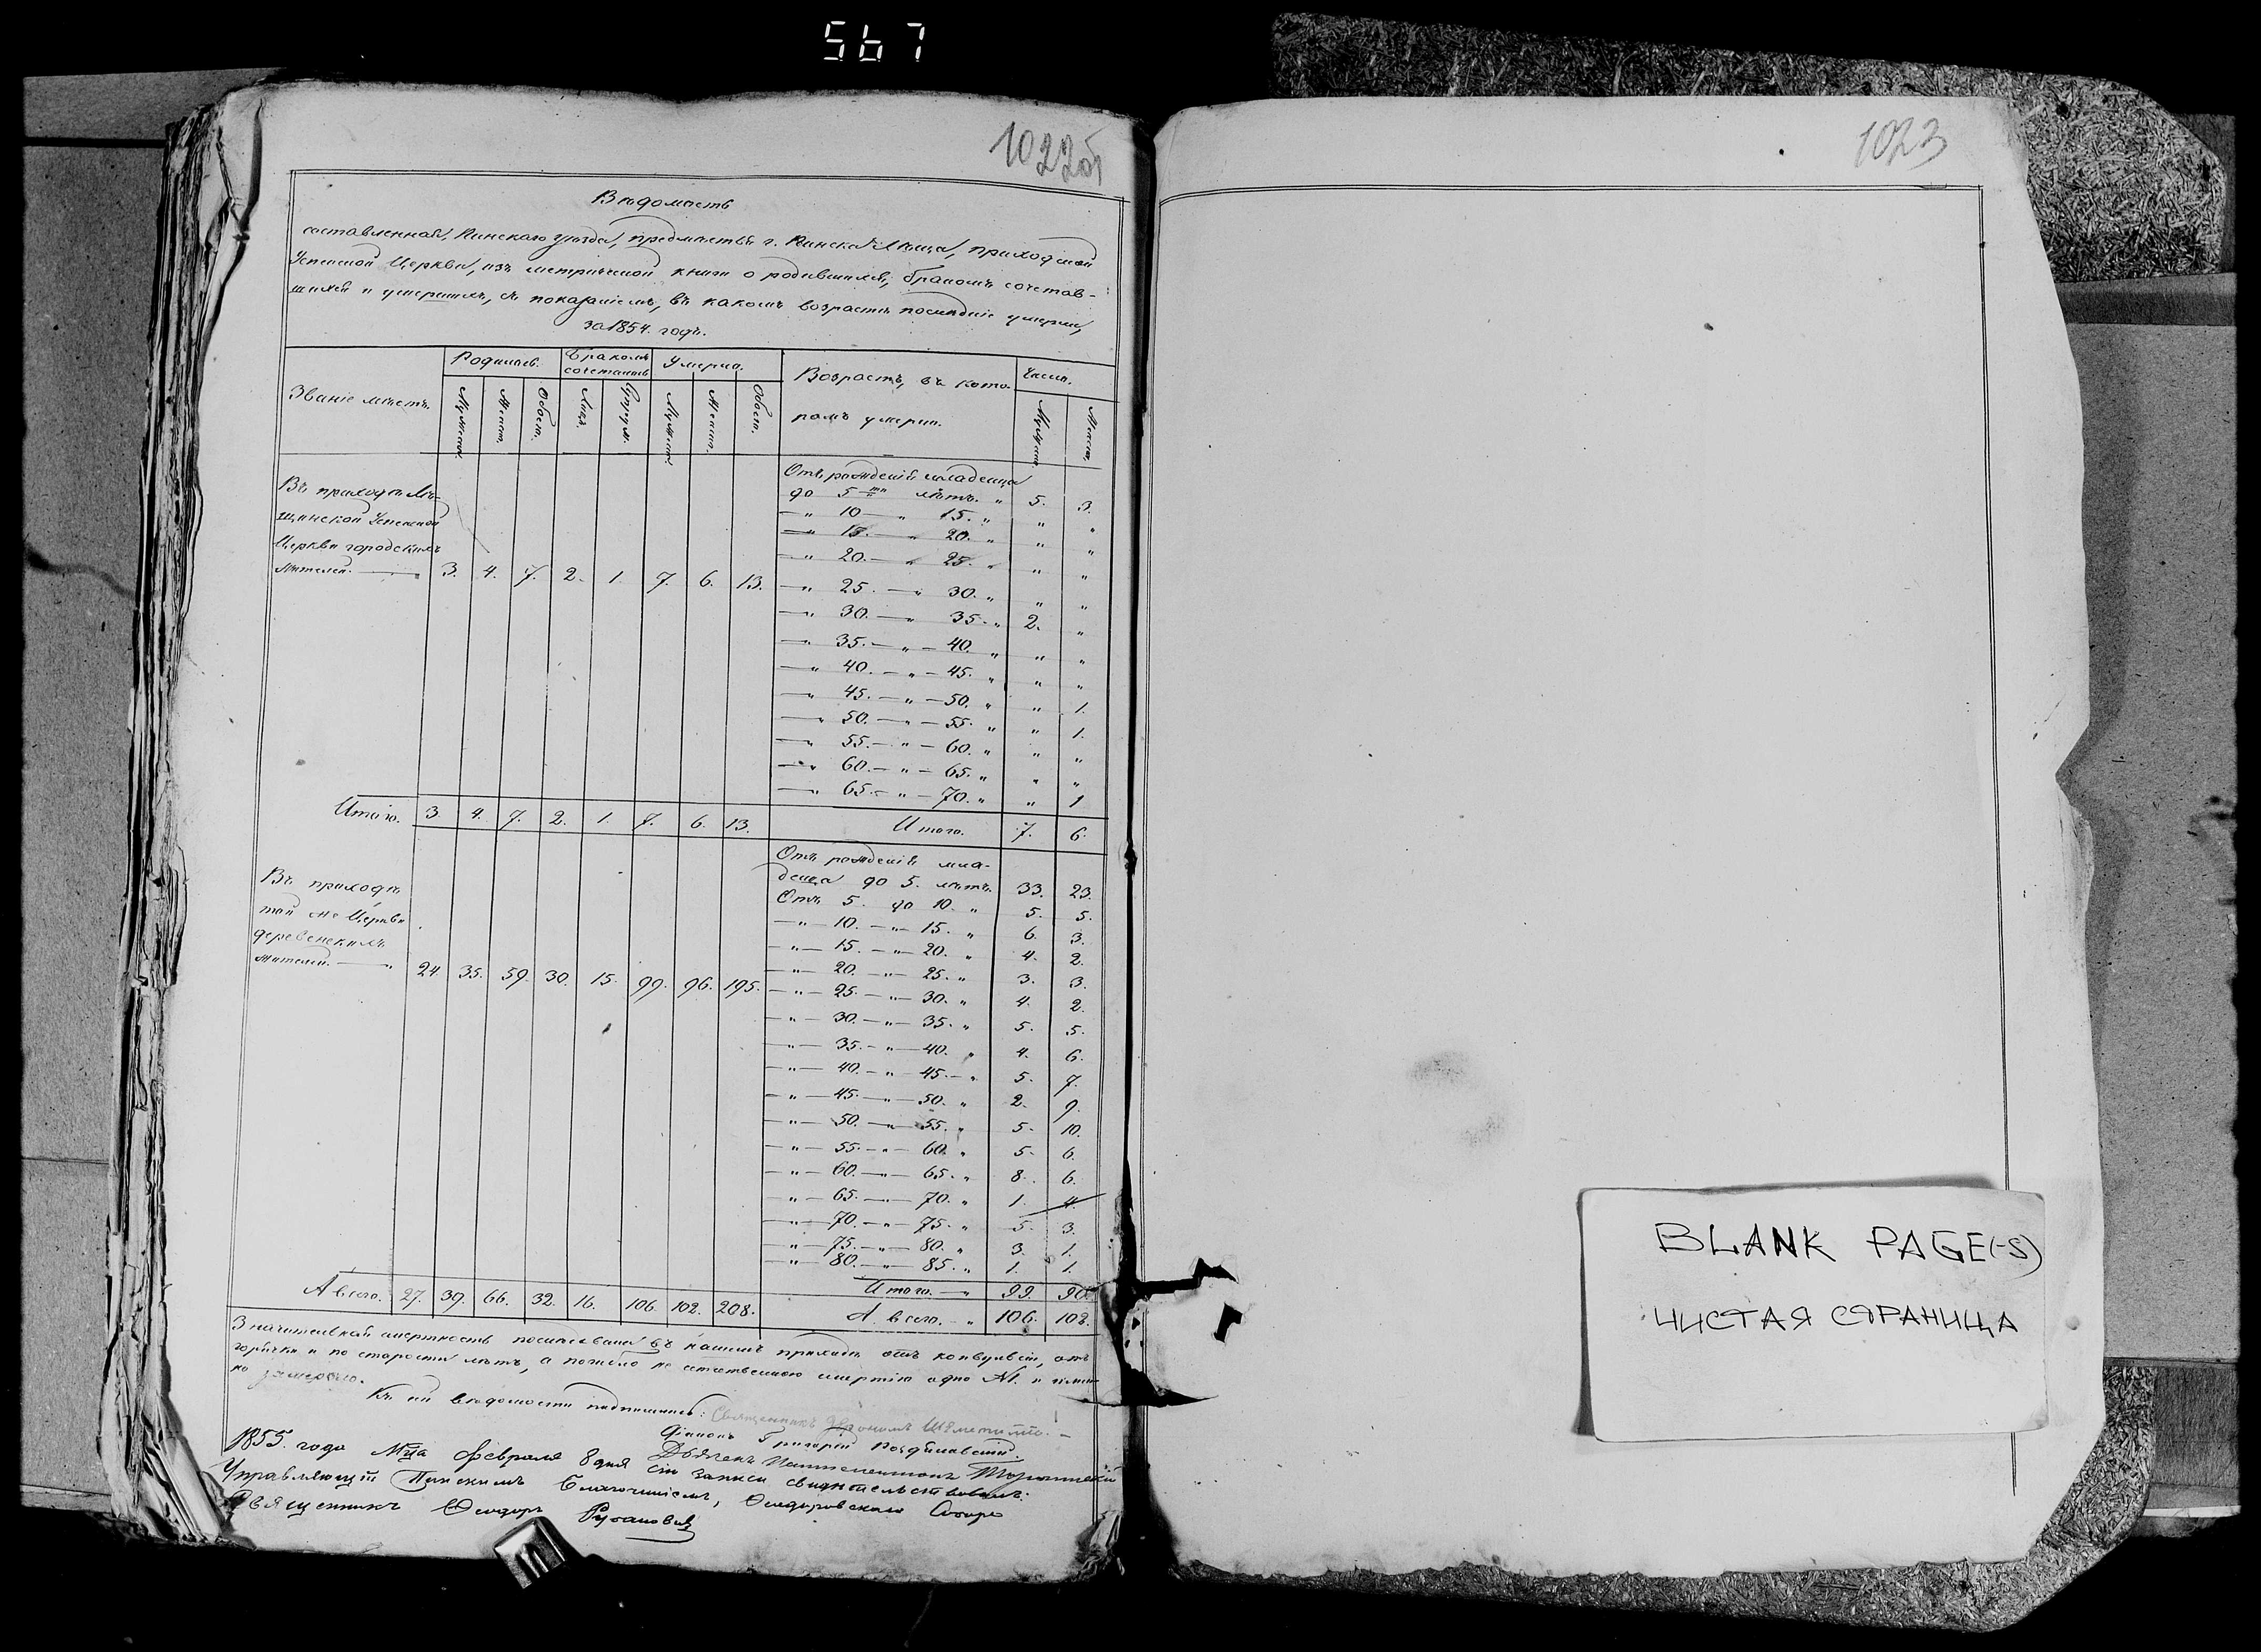 567
1022об
Вѣдомость
составленная, Пинскаго уѣзда, предмѣстья г. Пинска Лѣща, приходской
Успенской Церкви, изъ метрической книги о родившихся, бракомъ сочетав-
шихся и умершихъ, съ показаніемъ, въ какомъ возрастѣ послѣдніе умерли,
за 1854. годъ.
Званіе мѣстъ. Родилось. Бракомъ сочеталось Умерло. Возрастъ, въ кото- Число.
ромъ умерли.
Мужеск. Женск. Обоег. Лицъ. Мужеск. Женск. Обоег. Мужеск. Женск.
Отъ рожденія младенца
Въ приходѣ Лѣ- до 5ти лѣтъ. " 5. 3.
щинской Успенской — " 10 — " 15. " " "
— " 15. — " 20. " " "
Церкви городскихъ — " 20. — " 25. " " "
жителей. — 3. 4. 7. 2. 1. 7. 6. 13. — " 25. — " 30. " " "
— " 30. — " 35. " 2. "
— " 35. — " — 40. " " "
— " 40. — " — 45. " " "
— " 45. — " — 50. " " 1.
— " 50. — " — 55. " " 1.
— " 55. — " — 60. " " "
— " 60. — " — 65. " " "
— " 65. — " — 70. " " 1
Итого. 3. 4. 7. 2. 1. 7. 6. 13. Итого. 7. 6.
Отъ рожденія мла-
Въ приходѣ денца до 5. лѣтъ. 33. 23.
той же Церкви Отъ 5. до 10. " 5. 5.
— " — 10. — " — 15. " 6. 3.
деревенскихъ — " — 15. — " — 20. " 4. 2.
жителей. — " 24 35. 59. 30. 15. 99. 96. 195. — " — 20. — " — 25. " 3. 3.
— " — 25. — " — 30. " 4. 2.
— " — 30. — " — 35. " 5. 5.
— " — 35. — " — 40. " 4. 6.
— " — 40. — " — 45. — " 5. 7.
— " — 45. — " — 50. " 2. 9.
— " — 50. — " — 55. " 5. 10.
— " — 55. — " — 60. " 5. 6.
— " — 60. — " — 65. " 8. 6.
— " — 65. — " — 70. " 1. 4.
— " — 70. — " — 75. " 5. 3.
— " — 75. — " — 80. " 3. 1.
— " — 80. — " — 85. " 1. 1.
Итого. — " 99. 96
А всего. 27. 39. 66. 32. 16. 106. 102. 208. А всего. — " 106. 102.
Значительная смертность послѣдовала въ нашемъ приходѣ отъ конвульсіи, отъ
горячки и по старости лѣтъ, а не естественною смертію одно М.
но замерзло.
Къ сей вѣдомости подписались: Священникъ
Діаконъ Григорій
1855. года Мца Февраля 8 дня сіи записи свидѣтельствовалъ:
Управляющій Пинскимъ Благочиніемъ, Ѳеодоровскаго Собора
Священникъ Ѳеодоръ
1023
BLANK PAGE(-S)
ЧИСТАЯ СТРАНИЦА